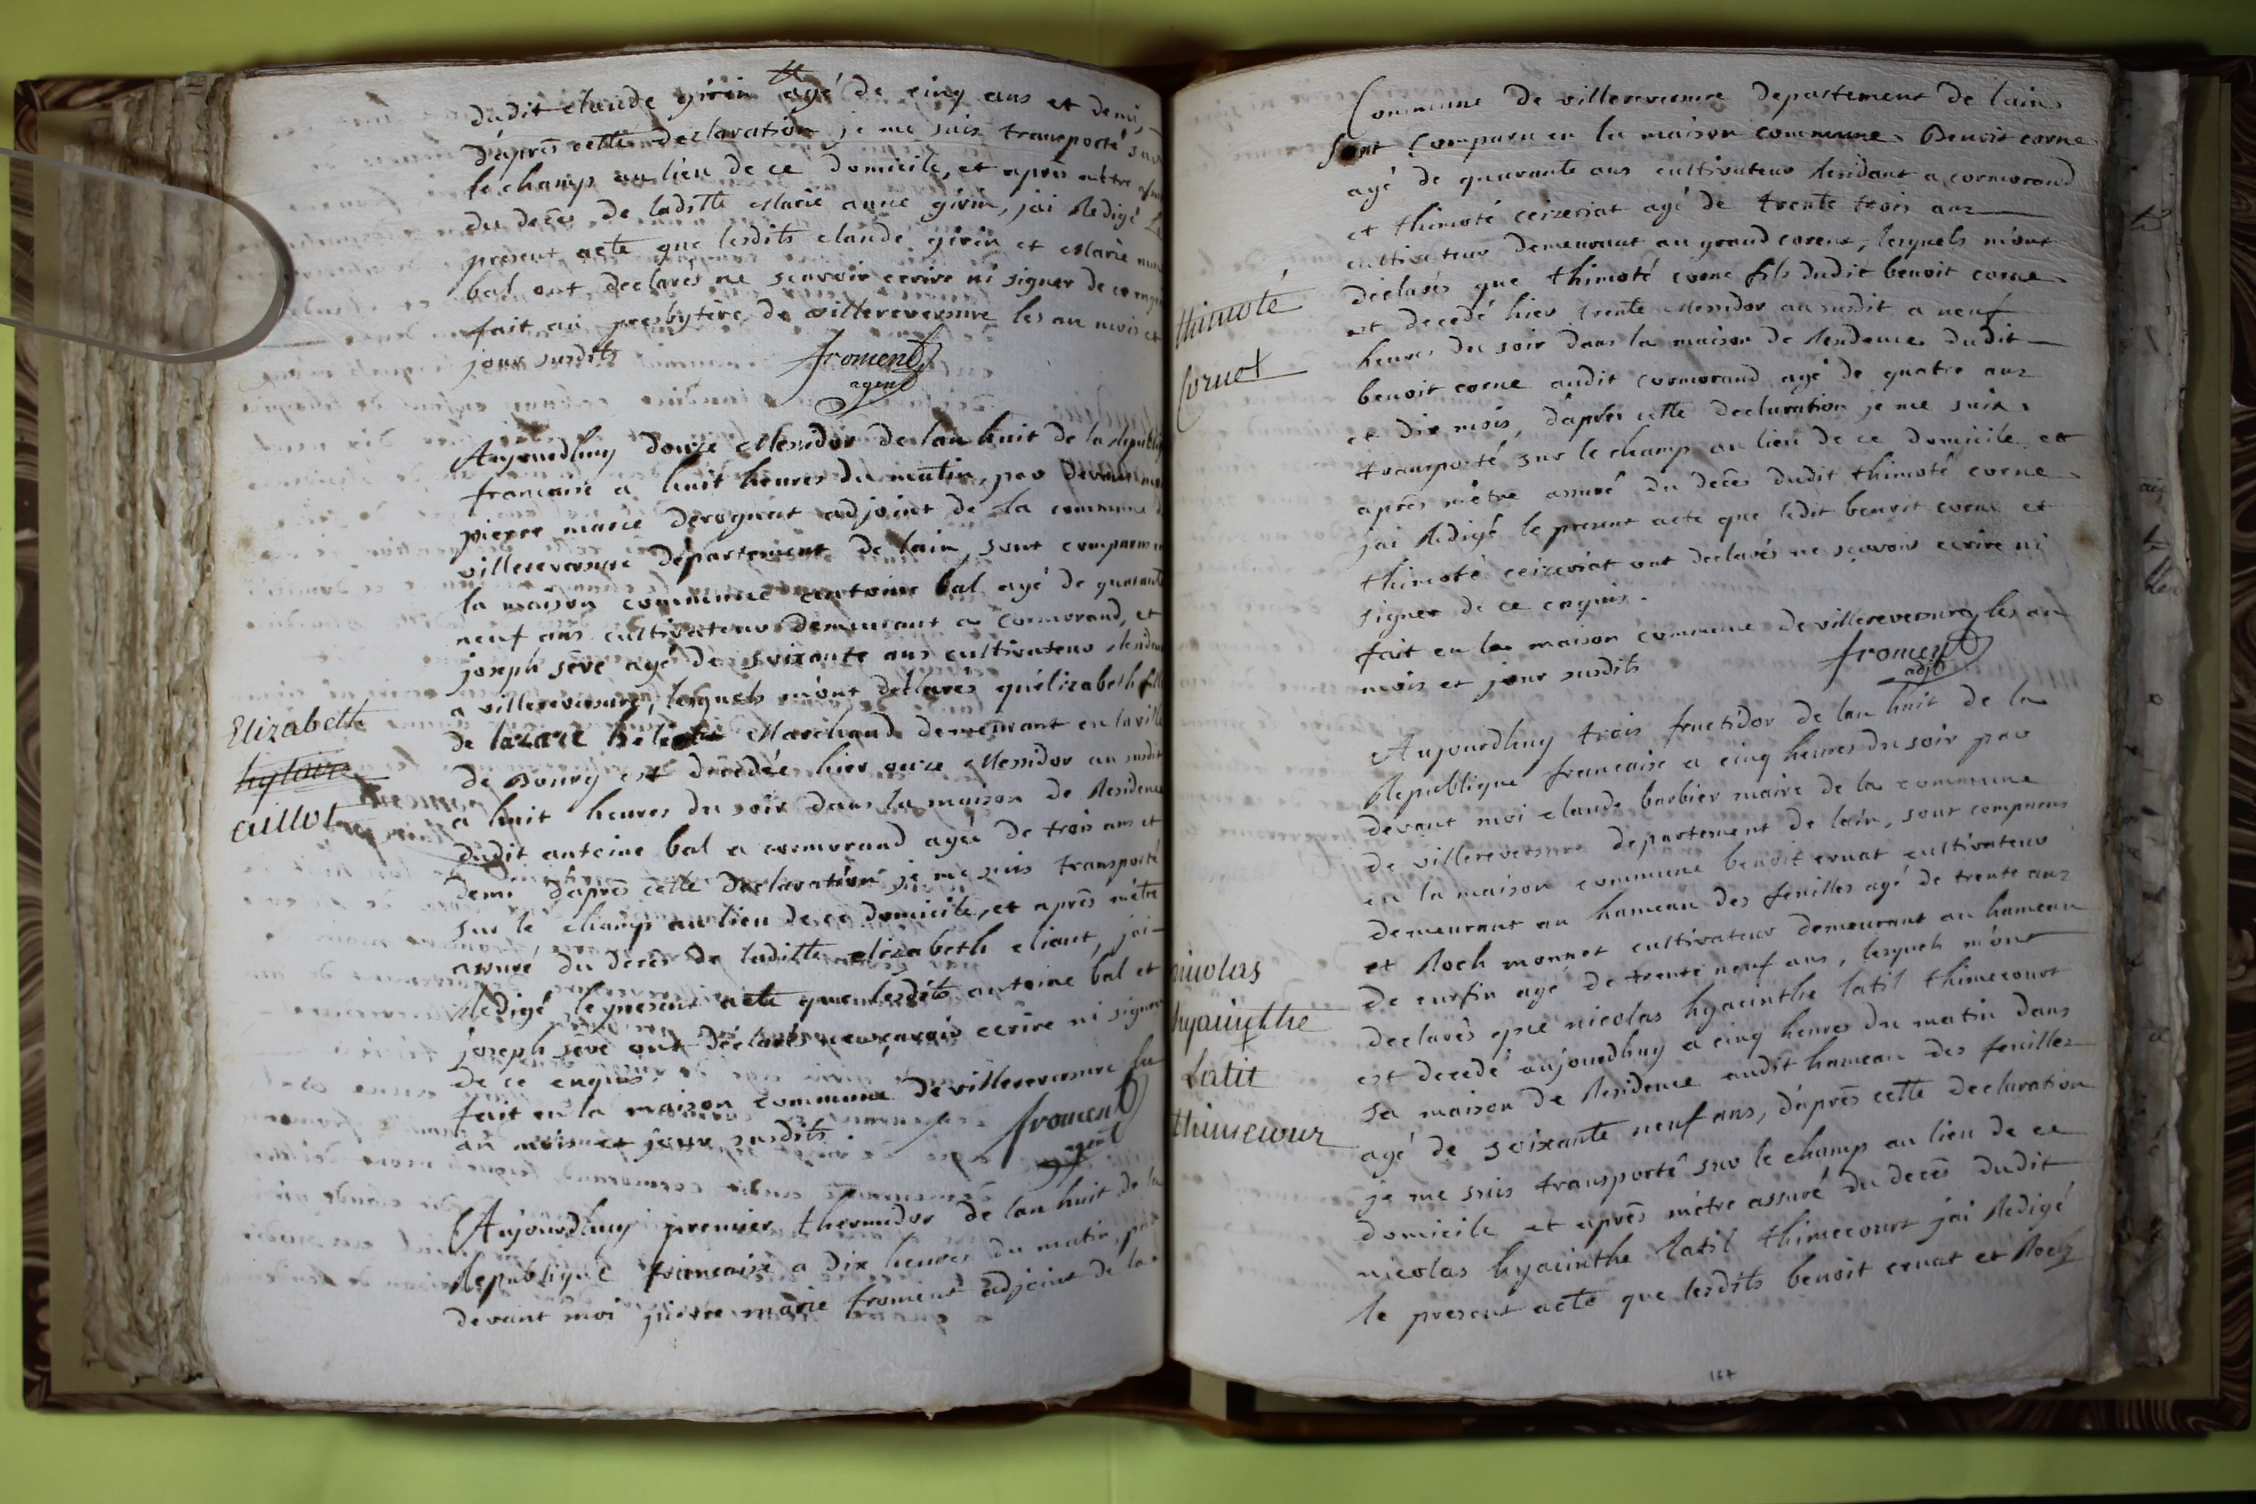 dudit claude girin agé de cinq ans et demi,
d'après cette declaration je me suis transporté sur
le champ au lieu de ce domicile, et apres
du decès de laditte marie anne girin, j'ai redigé le
present acte que lesdits claude girin et marie
bal ont declarés ne scavoir ecrire ni signer de ce
fait au presbytère de villereversure les an mois et
jour susdits
froment
agent
Aujourdhuy douze Messidor de lan huit de la
francaise a huit heures du matin, par devant
pierre marie derognat adjoint de la commune
villereversure departement de lain, sont comparus
la maison commune antoine bal agé de quarante
neuf ans cultivateur demeurant a Cormorand, et
joseph sève agé de soixante ans cultivateur
a villereversure, lesquels m'ont déclarés qu'elizabeth fille
de lazare Marchand demeurant en la ville
de Bourg est decedée hier onze Messidor an susdit
a huit heures du soir dans la maison de Residence
dudit antoine bal a cormorand agée de trois ans et
demi d'après cette declaration je me suis transporté
sur le champ au lieu de ce domicile, et après m'être
assuré du decès de laditte elizabeth j'ai
Redigé le present acte que lesdits antoine bal et
joseph sève ont déclarés ne sçavoir ecrire ni signer
de ce enquis.
fait en la maison commune de villereversure
an mois et jour susdits
froment
agent
Aujourdhuy premier thermidor de lan huit de la
Republique francaise a dix heures du matin, par
devant moi pierre marie froment adjoint de la
Elizabeth
cuillot
Commune de villereversure departement de lain
Sont Comparu en la maison commune Benoit corne
agé de quarante ans cultivateur Residant a cormorand
et thimoté ceizeriat agé de trente trois ans
cultivateur demeurant au grand corent, lesquels m'ont
déclarés que thimoté corne fils dudit benoit corne
est decedé hier trente Messidor an susdit a neuf
heures du soir dans la maison de Residence dudit
benoit corne audit cormorand agé de quatre ans
et dix mois, d'après cette declaration je me suis
transporté sur le champ au lieu de ce domicile et
après m'être assuré du decès dudit thimoté corne
j'ai Redigé le present acte que ledit benoit corne et
thimoté ceizeriat ont declarés ne sçavoir ecrire ni
signer de ce enquis.
fait en la maison commune de villereversure les an
mois et jour susdits
froment
adjt
Aujourdhuy trois fructidor de lan huit de la
Republique francaise a cinq heures du soir par
devant moi claude barbier maire de la commune
de villereversure departement de lain, sont comparus
en la maison commune benoit cruat cultivateur
demeurant au hameau des feuilles agé de trente ans
et Roch monnet cultivateur demeurant au hameau
de curfin agé de trente neuf ans, lesquels m'ont
declarés que nicolas hyacinthe latil thimecourt
est decedé aujourdhuy a cinq heures du matin dans
sa maison de Residence audit hameau des feuilles
agé de soixante neuf ans, d'après cette declaration
je me suis transporté sur le champ au lieu de ce
domicile et après m'être assuré du decès dudit
nicolas hyacinthe latil thimecourt j'ai Redigé
le present acte que lesdits benoit cruat et Roch
thimoté
Cornet
nicolas
hyacinthe
Latil
thimecour
167